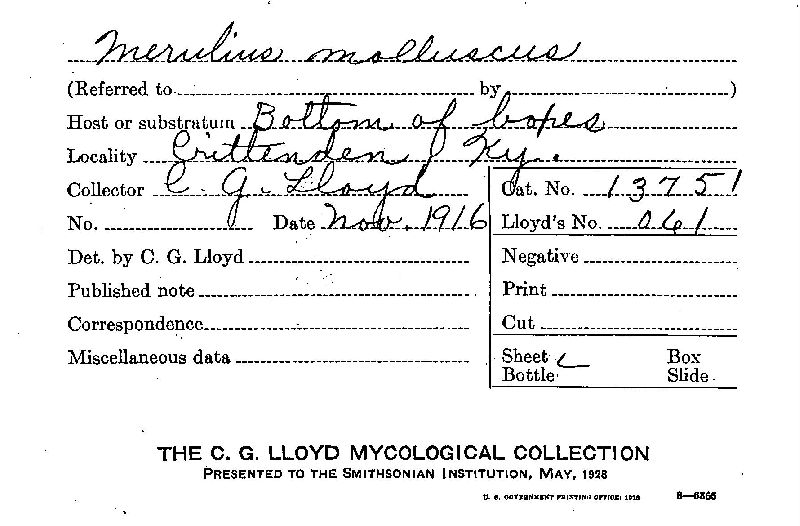 Merulius molluscus
(Referred to by )
Host or substratum Bottom of boxes
Locality Crittenden, Ky.
Collector C. G. Lloyd Cat. No. 13751
No. Date Nov. 1916 Lloyd's No. 061
Det. by C. G. Lloyd Negative
Published note Print
Correspondence Cut
Miscellaneous data Sheet Box
Bottle Slide
THE C. G. LLOYD MYCOLOGICAL COLLECTION
PRESENTED TO THE SMITHSONIAN INSTITUTION, MAY, 1928
U. S. GOVERNMENT PRINTING OFFICE: 1928 8—6366